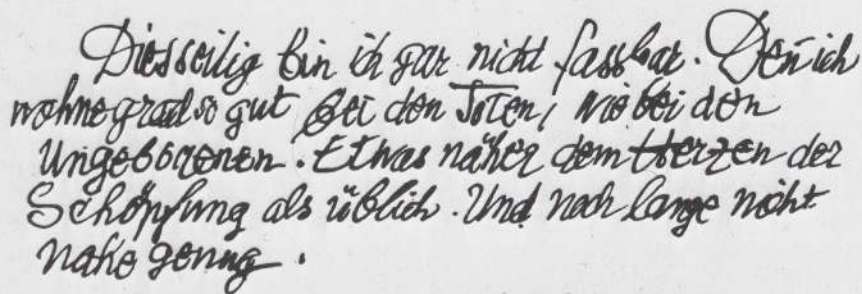 Diesseitig bin ich gar nicht fassbar. Den̄ ich
wohne grad so gut bei den Toten, wie bei den
Ungeborenen. Etwas näher dem Herzen der
Schöpfung als üblich. Und noch lange nicht
nahe genug.